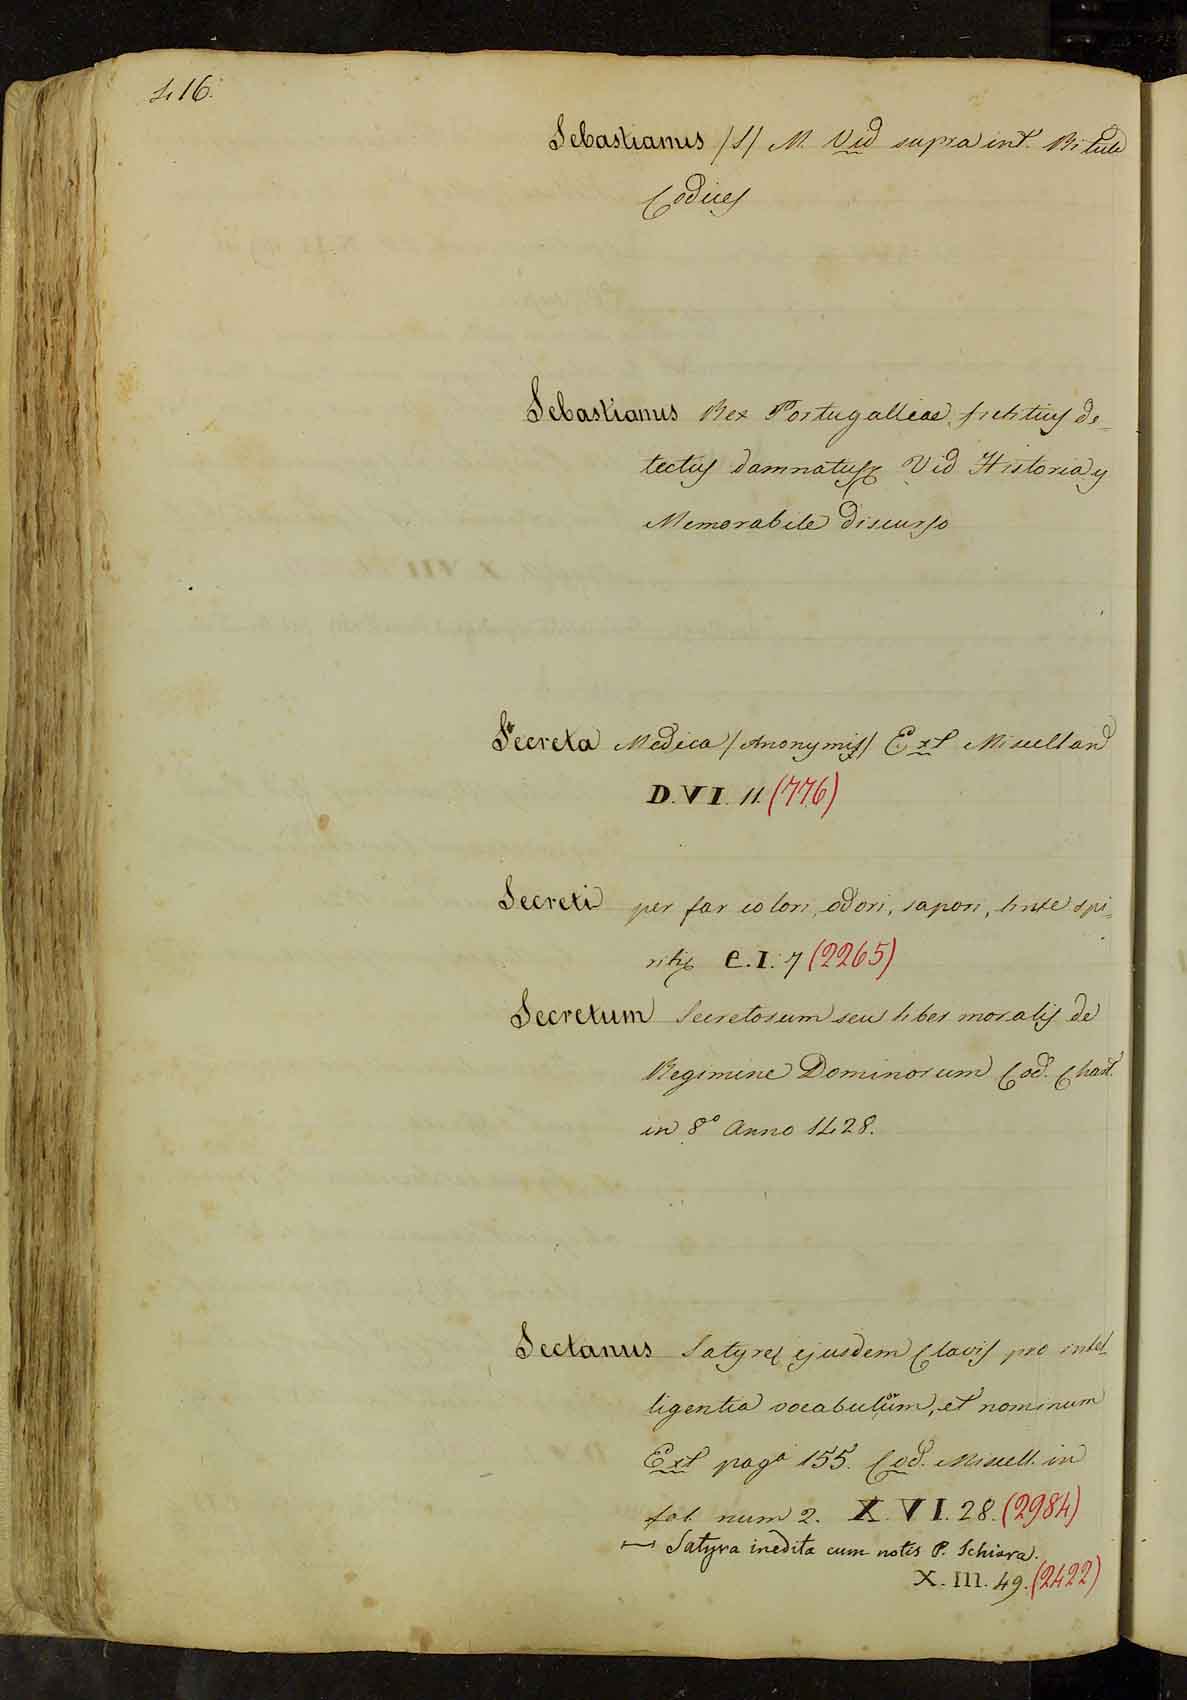 416.
Sebastianus /S/ M. Vid supra int. Ritule
Codices
Sebastianus Rex Portugalliae fictitius de=
tectus damnatusq Vid Historia y
Memorabile discurso
Secreta Medica /Anonymis/ Ext Miscelland
D. VI. 11. (776)
Secreti per far colori, odori, sapori, tinte spi=
riti C. I. 7 (2265)
Secretum Secretorum seu liber moralis de
Regimine Dominorum Cod. Chart.
in 8º Anno 1428.
Sectanus Satyre ejusdem Clavis pro intel
ligentia vocabulorum, et nominum
Ext paga 155. Cod. Miscell. in
fol. num 2. X. VI. 28. (2984)
— Satyra inedita cum notis P. Schiara.
X. III. 49. (2422)